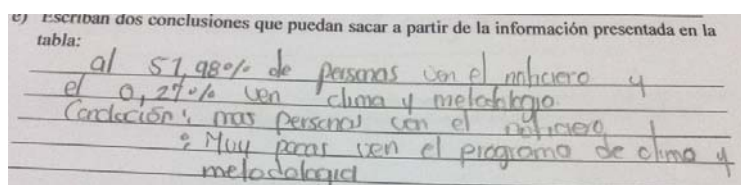 e) Escriban dos conclusiones que puedan sacar a partir de la información presentada en la
tabla:
al 51,98% de personas ven el noticiero y
el 0,27% ven clima y metodologio
Conclución: mas personas ven el noticiero
: Muy pocas ven el programa de clima y
metodologia